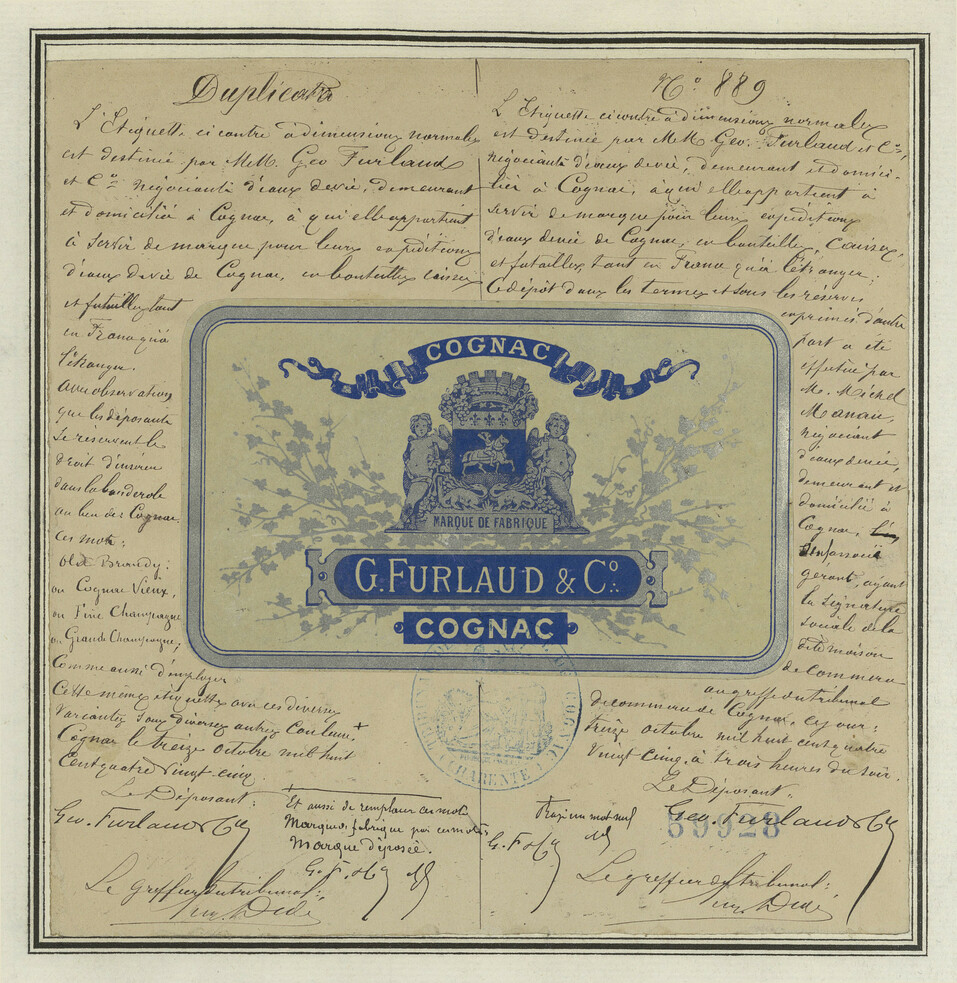 Duplicata
L'Etiquette ci contre a dimensions normales
est destinée par M.M. Geo Furlaud
et Cie négociants d'eaux de vie, demeurant
et domiciliés à Cognac, à qui elle appartient
à servir de marque pour leurs expéditions
d'eaux de vie de Cognac, en bouteilles, caisses
et futailles, tant
en France qu'à
l'étranger.
Avec observation
que les déposants
se réservent le
droit d'insérer
dans la banderole
au lieu de: Cognac
ces mots:
old Brandy;
ou Cognac Vieux,
ou Fine Champagne
ou Grande Champagne;
Comme aussi d'employer
cette même étiquette avec ces diverses
variantes sous diverses autres couleurs +
Cognac le treize octobre mil huit
cent quatre vingt cinq.
Le Déposant:
Geo. Furlaud & Cie
+ Et aussi de remplacer ces mots
Marque de fabrique par ces mots:
Marque déposée.
G. F. & Cy
Le greffier du tribunal:
Dedé
No 889
L'Etiquette ci contre à dimensions normales
est destinée par M.M. Geo. Furlaud et Cie,
négociants d'eaux de vie, demeurant et domici-
liés à Cognac, à qui elle appartient à
servir de marque pour leurs expéditions
d'eaux de vie de Cognac, en bouteilles, caisses,
et futailles, tant en France qu'à l'étranger,
Ce dépôt dans les termes et sous les réserves
exprimés d'autre
part a été
effectué par
Mr. Michel
négociant
d'eaux de vie,
demeurant et
domicilié à
Cognac,
gérant, ayant
la signature
sociale de la
dite maison
de commerce
au greffe du tribunal
de commerce de Cognac, ce jour:
treize octobre mil huit cent quatre
vingt cinq, à trois heures du soir.
Le Déposant:
Geo. Furlaud & Cy
59928
Rayé un mot nul
G. F. & Cy
Le greffier du tribunal:
Dedé
COGNAC
MARQUE DE FABRIQUE
G. FURLAUD & Co.
COGNAC
CHARENTE